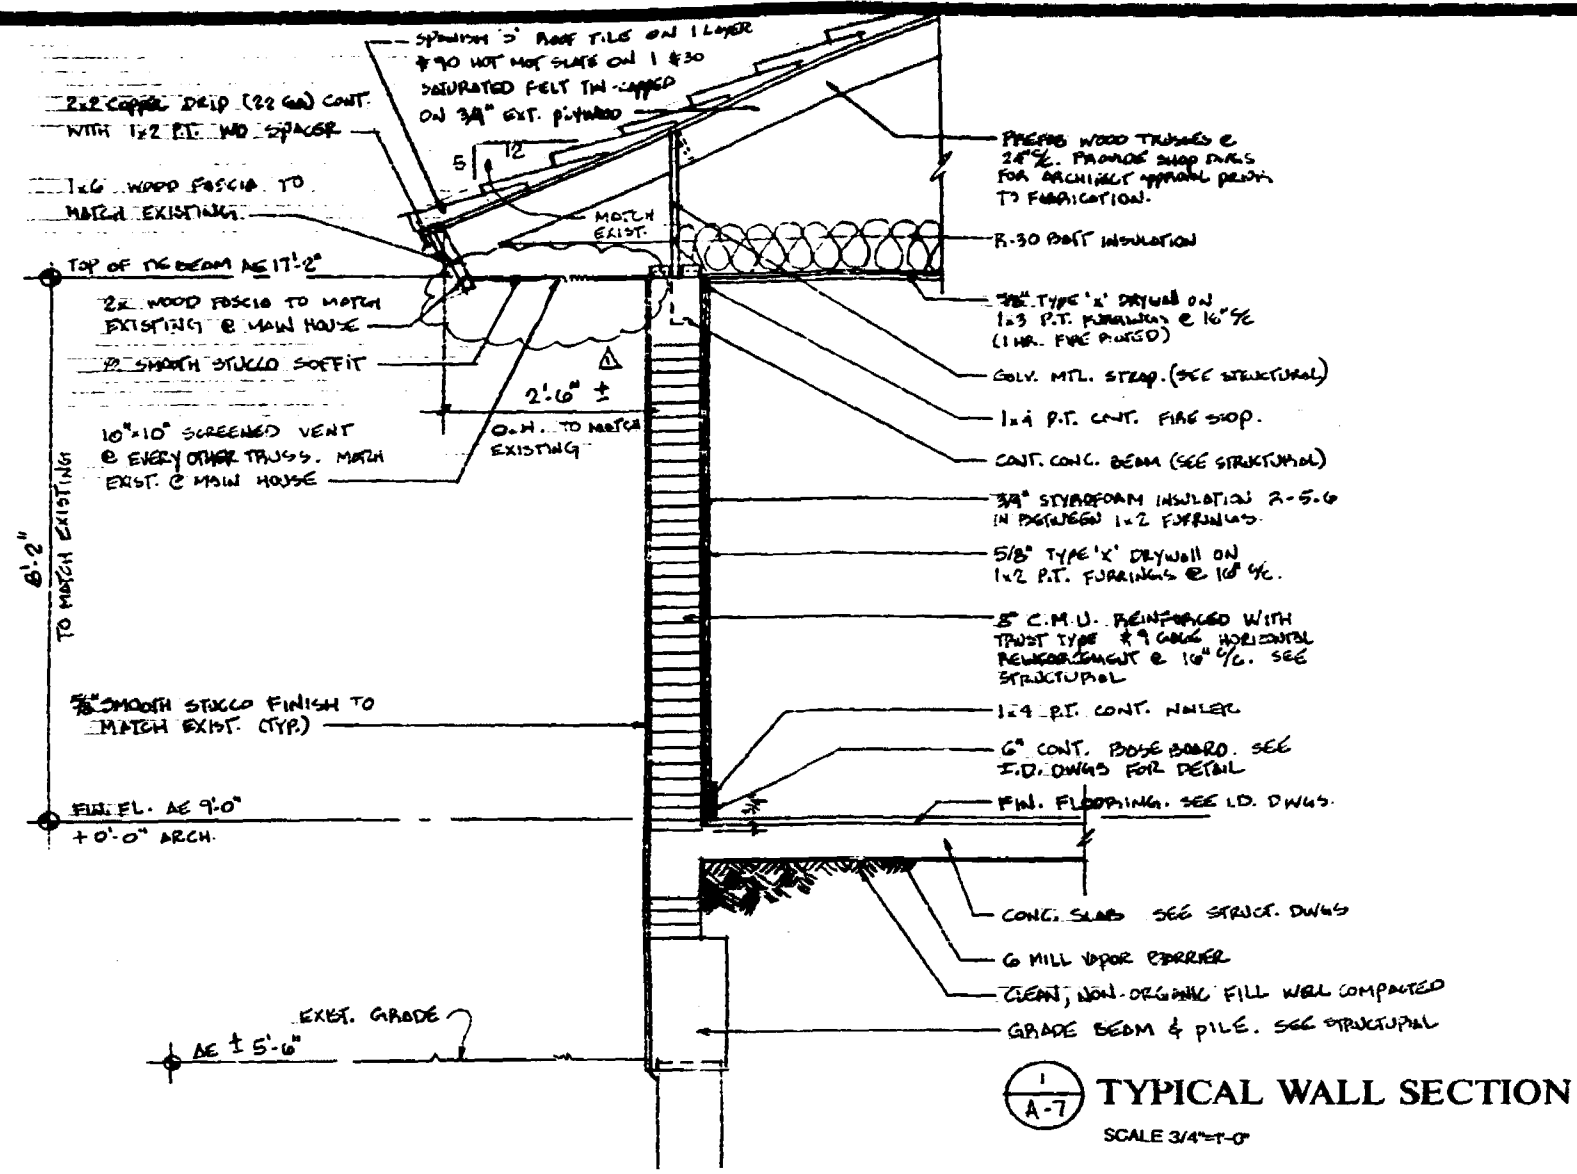 SPANISH 'S' ROOF TILE ON 1 LAYER
#90 HOT MOT SLATE ON 1 #30
SATURATED FELT TIN-CAPPED
ON 3/4" EXT. PLYWOOD
2x2 COPPER DRIP (22 GA) CONT.
WITH 1x2 P.T. WD SPACER
5
12
1x6 WOOD FASCIA TO
MATCH EXISTING
MATCH
EXIST.
TOP OF TIE BEAM AE 17'-2"
2x WOOD FASCIA TO MATCH
EXISTING @ MAIN HOUSE
SMOOTH STUCCO SOFFIT
1
2'-6" ±
O.H. TO MATCH
EXISTING
10"x10" SCREENED VENT
@ EVERY OTHER TRUSS. MATCH
EXIST. @ MAIN HOUSE
8'-2"
TO MATCH EXISTING
5/8" SMOOTH STUCCO FINISH TO
MATCH EXIST. (TYP.)
FIN. FL. AE 9'-0"
+0'-0" ARCH.
EXIST. GRADE
AE ± 5'-6"
PREFAB WOOD TRUSSES @
24" O/C. PROVIDE SHOP DWGS
FOR ARCHITECT APPROVAL PRIOR
TO FABRICATION.
R-30 BATT INSULATION
5/8" TYPE 'X' DRYWALL ON
1x3 P.T. FURRINGS @ 16" O/C
(1 HR. FIRE RATED)
GALV. MTL. STRAP. (SEE STRUCTURAL)
1x4 P.T. CONT. FIRE STOP.
CONT. CONC. BEAM (SEE STRUCTURAL)
3/4" STYROFOAM INSULATION R-5.6
IN BETWEEN 1x2 FURRINGS.
5/8" TYPE 'X' DRYWALL ON
1x2 P.T. FURRINGS @ 16" O/C.
8" C.M.U. REINFORCED WITH
TRUST TYPE #9 GAGE HORIZONTAL
REINFORCEMENT @ 16" O/C. SEE
STRUCTURAL
1x4 P.T. CONT. NAILER
6" CONT. BASE BOARD. SEE
I.D. DWGS FOR DETAIL
FIN. FLOORING. SEE I.D. DWGS.
CONC. SLAB SEE STRUCT. DWGS
6 MILL VAPOR BARRIER
CLEAN, NON-ORGANIC FILL WELL COMPACTED
GRADE BEAM & PILE. SEE STRUCTURAL
1
A-7
TYPICAL WALL SECTION
SCALE 3/4"=1'-0"